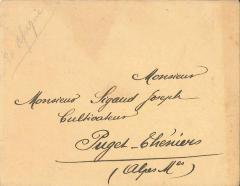 Monsieur
Monsieur Sigaud Joseph
Cultivateur
Puget-Théniers
(Alpes Mmes)